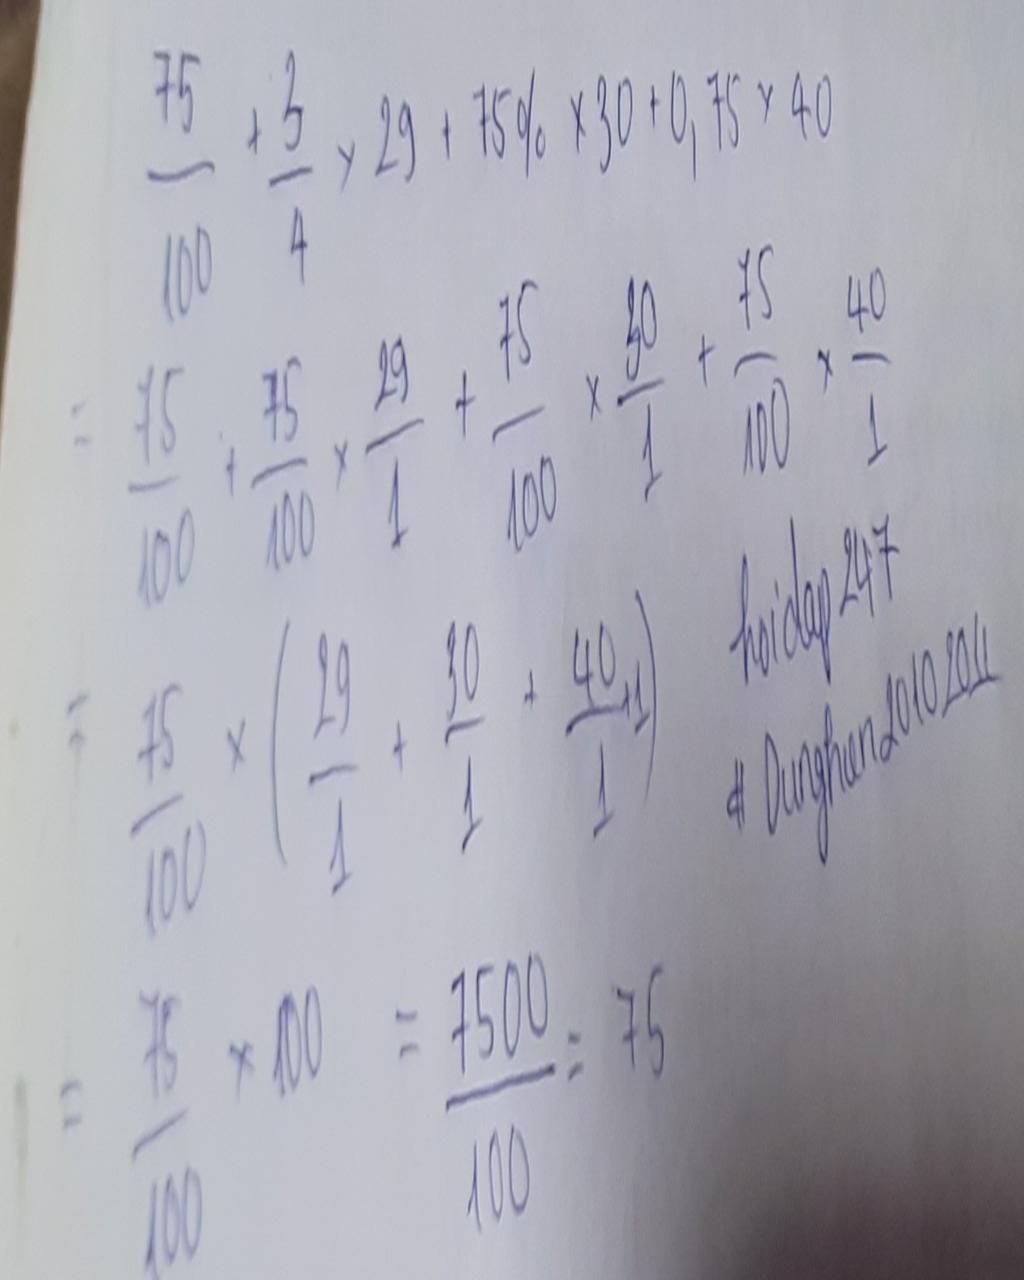 75/100 + 3/4 × 29 + 75% × 30 + 0,75 × 40
= 75/100 + 75/100 × 29/1 + 75/100 × 30/1 + 75/100 × 40/1
= 75/100 × (29/1 + 30/1 + 40/1 +1)
hoidap247
# Dunghien20102011
= 75/100 × 100 = 7500/100 = 75